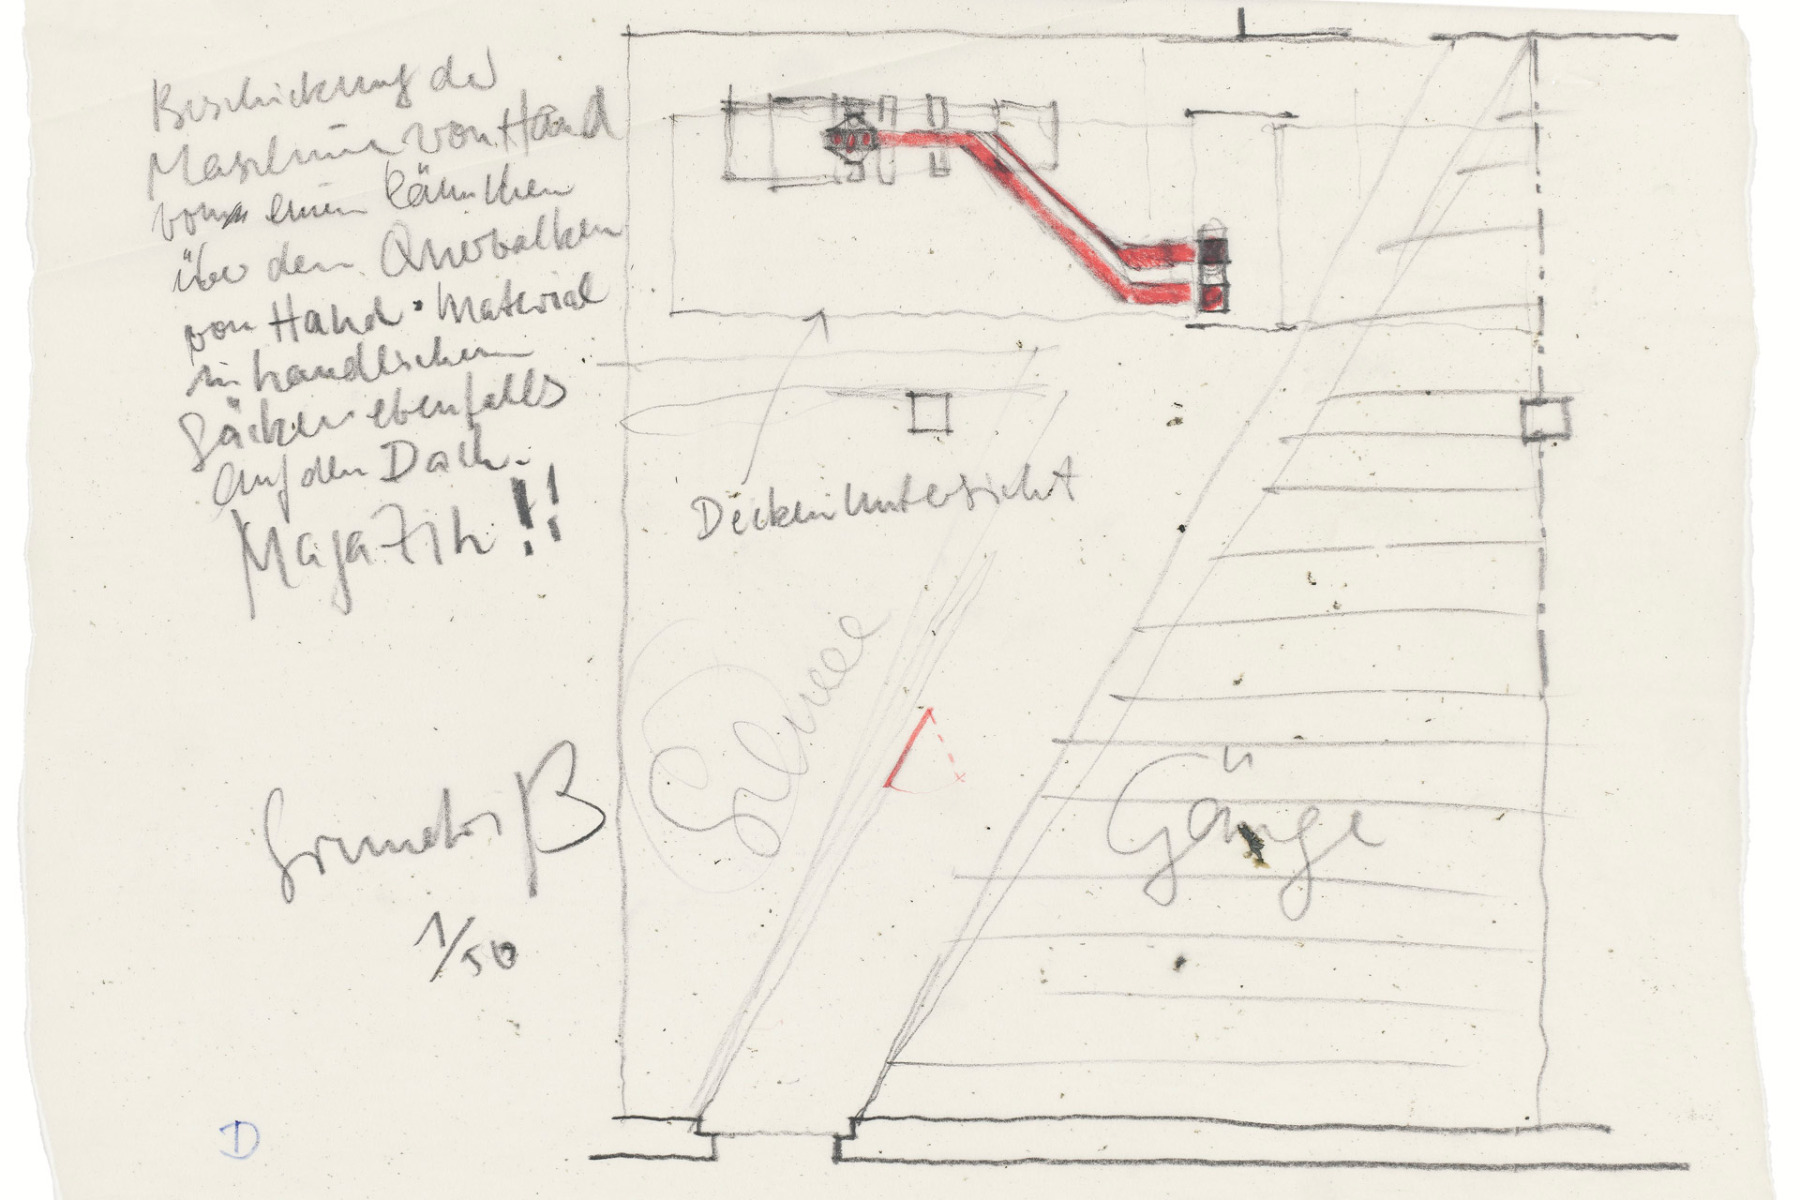 Beschickung der
Maschine von Hand
vom einem
über den Querbalken
von Hand. Material
in handlichen
Säcken ebenfalls
auf dem Dach.
Magazin!!
Deckenuntersicht
Gänge
Grundriß
1/50
D